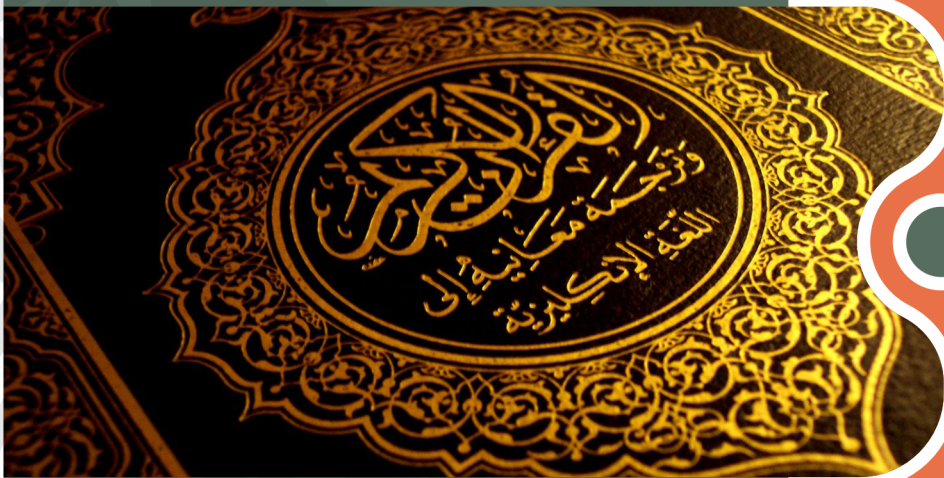 القرآن الكريم
وَتَرْجَمَة مَعَانِيهِ إِلى
اللّغَةِ الإنكليزيَّة